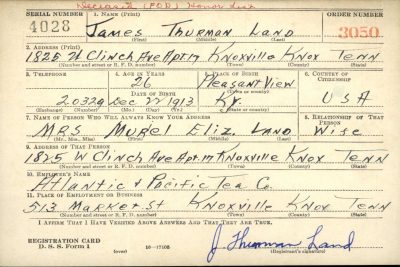 Deceased (POD) Honor List
SERIAL NUMBER 1. NAME (Print) ORDER NUMBER
4028 James Thurman Land 3050
(First) (Middle) (Last)
2. ADDRESS (Print)
1825 W Clinch Ave Apt m Knoxville Knox Tenn
(Number and street or R. F. D. number) (Town) (County) (State)
3. TELEPHONE 4. AGE IN YEARS 5. PLACE OF BIRTH 6. COUNTRY OF CITIZENSHIP
26 Pleasant View
DATE OF BIRTH (Town or county)
2.0329 Dec 22 1913 Ky. USA
(Exchange) (Number) (Mo.) (Day) (Yr.) (State or country)
7. NAME OF PERSON WHO WILL ALWAYS KNOW YOUR ADDRESS 8. RELATIONSHIP OF THAT PERSON
MRS Murel Eliz. Land Wife
(Mr., Mrs., Miss) (First) (Middle) (Last)
9. ADDRESS OF THAT PERSON
1825 W Clinch Ave Apt m Knoxville Knox Tenn
(Number and street or R. F. D. number) (Town) (County) (State)
10. EMPLOYER'S NAME
Atlantic & Pacific Tea Co.
11. PLACE OF EMPLOYMENT OR BUSINESS
513 Market St Knoxville Knox Tenn
(Number and street or R. F. D. number) (Town) (County) (State)
I AFFIRM THAT I HAVE VERIFIED ABOVE ANSWERS AND THAT THEY ARE TRUE.
REGISTRATION CARD
D. S. S. Form 1 (over) 16-17105 J Thurman Land
(Registrant's signature)